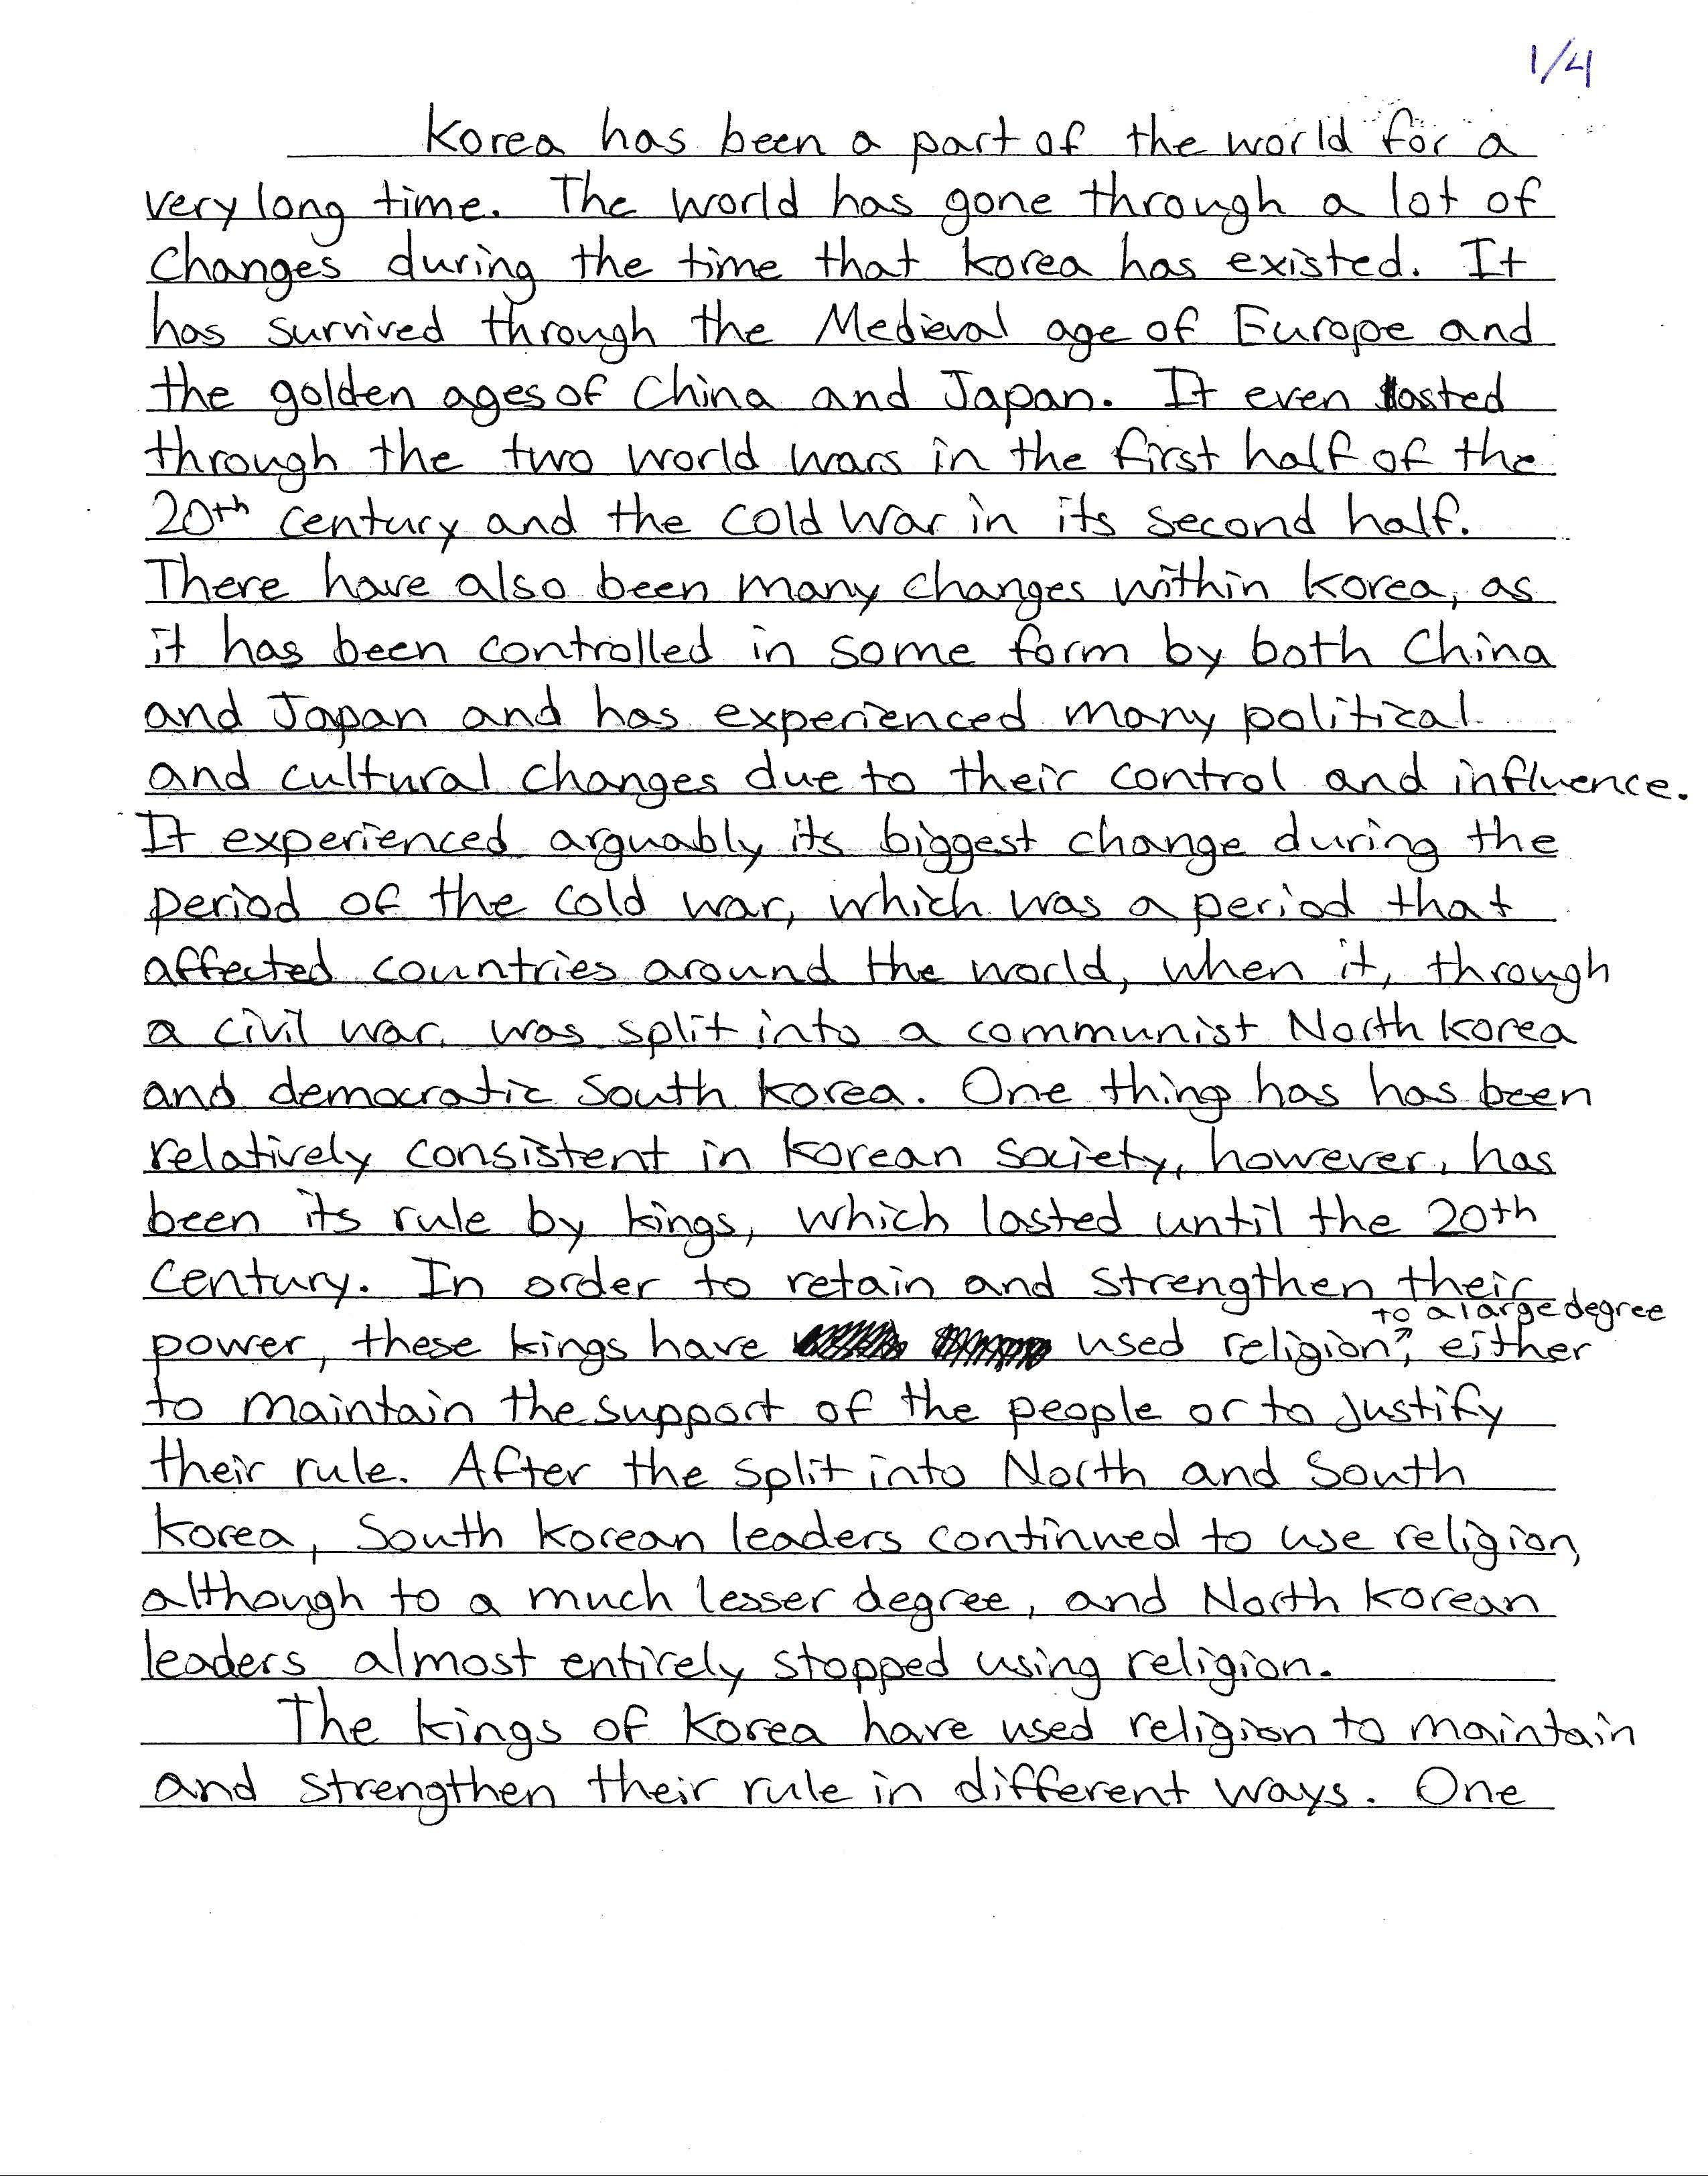 1/4
Korea has been a part of the world for a
very long time. The world has gone through a lot of
changes during the time that Korea has existed. It
has survived through the Medieval age of Europe and
the golden ages of China and Japan. It even lasted
through the two world wars in the first half of the
20th century and the cold war in its second half.
There have also been many changes within Korea, as
it has been controlled in some form by both China
and Japan and has experienced many political
and cultural changes due to their control and influence.
It experienced arguably its biggest change during the
period of the cold war, which was a period that
affected countries around the world, when it, through
a civil war, was split into a communist North Korea
and democratic South Korea. One thing has has been
relatively consistent in Korean society, however, has
been its rule by kings, which lasted until the 20th
century. In order to retain and strengthen their
to a large degree
power, these kings have used religion, either
to maintain the support of the people or to justify
their rule. After the split into North and South
Korea, South Korean leaders continued to use religion,
although to a much lesser degree, and North Korean
leaders almost entirely stopped using religion.
The kings of Korea have used religion to maintain
and strengthen their rule in different ways. One